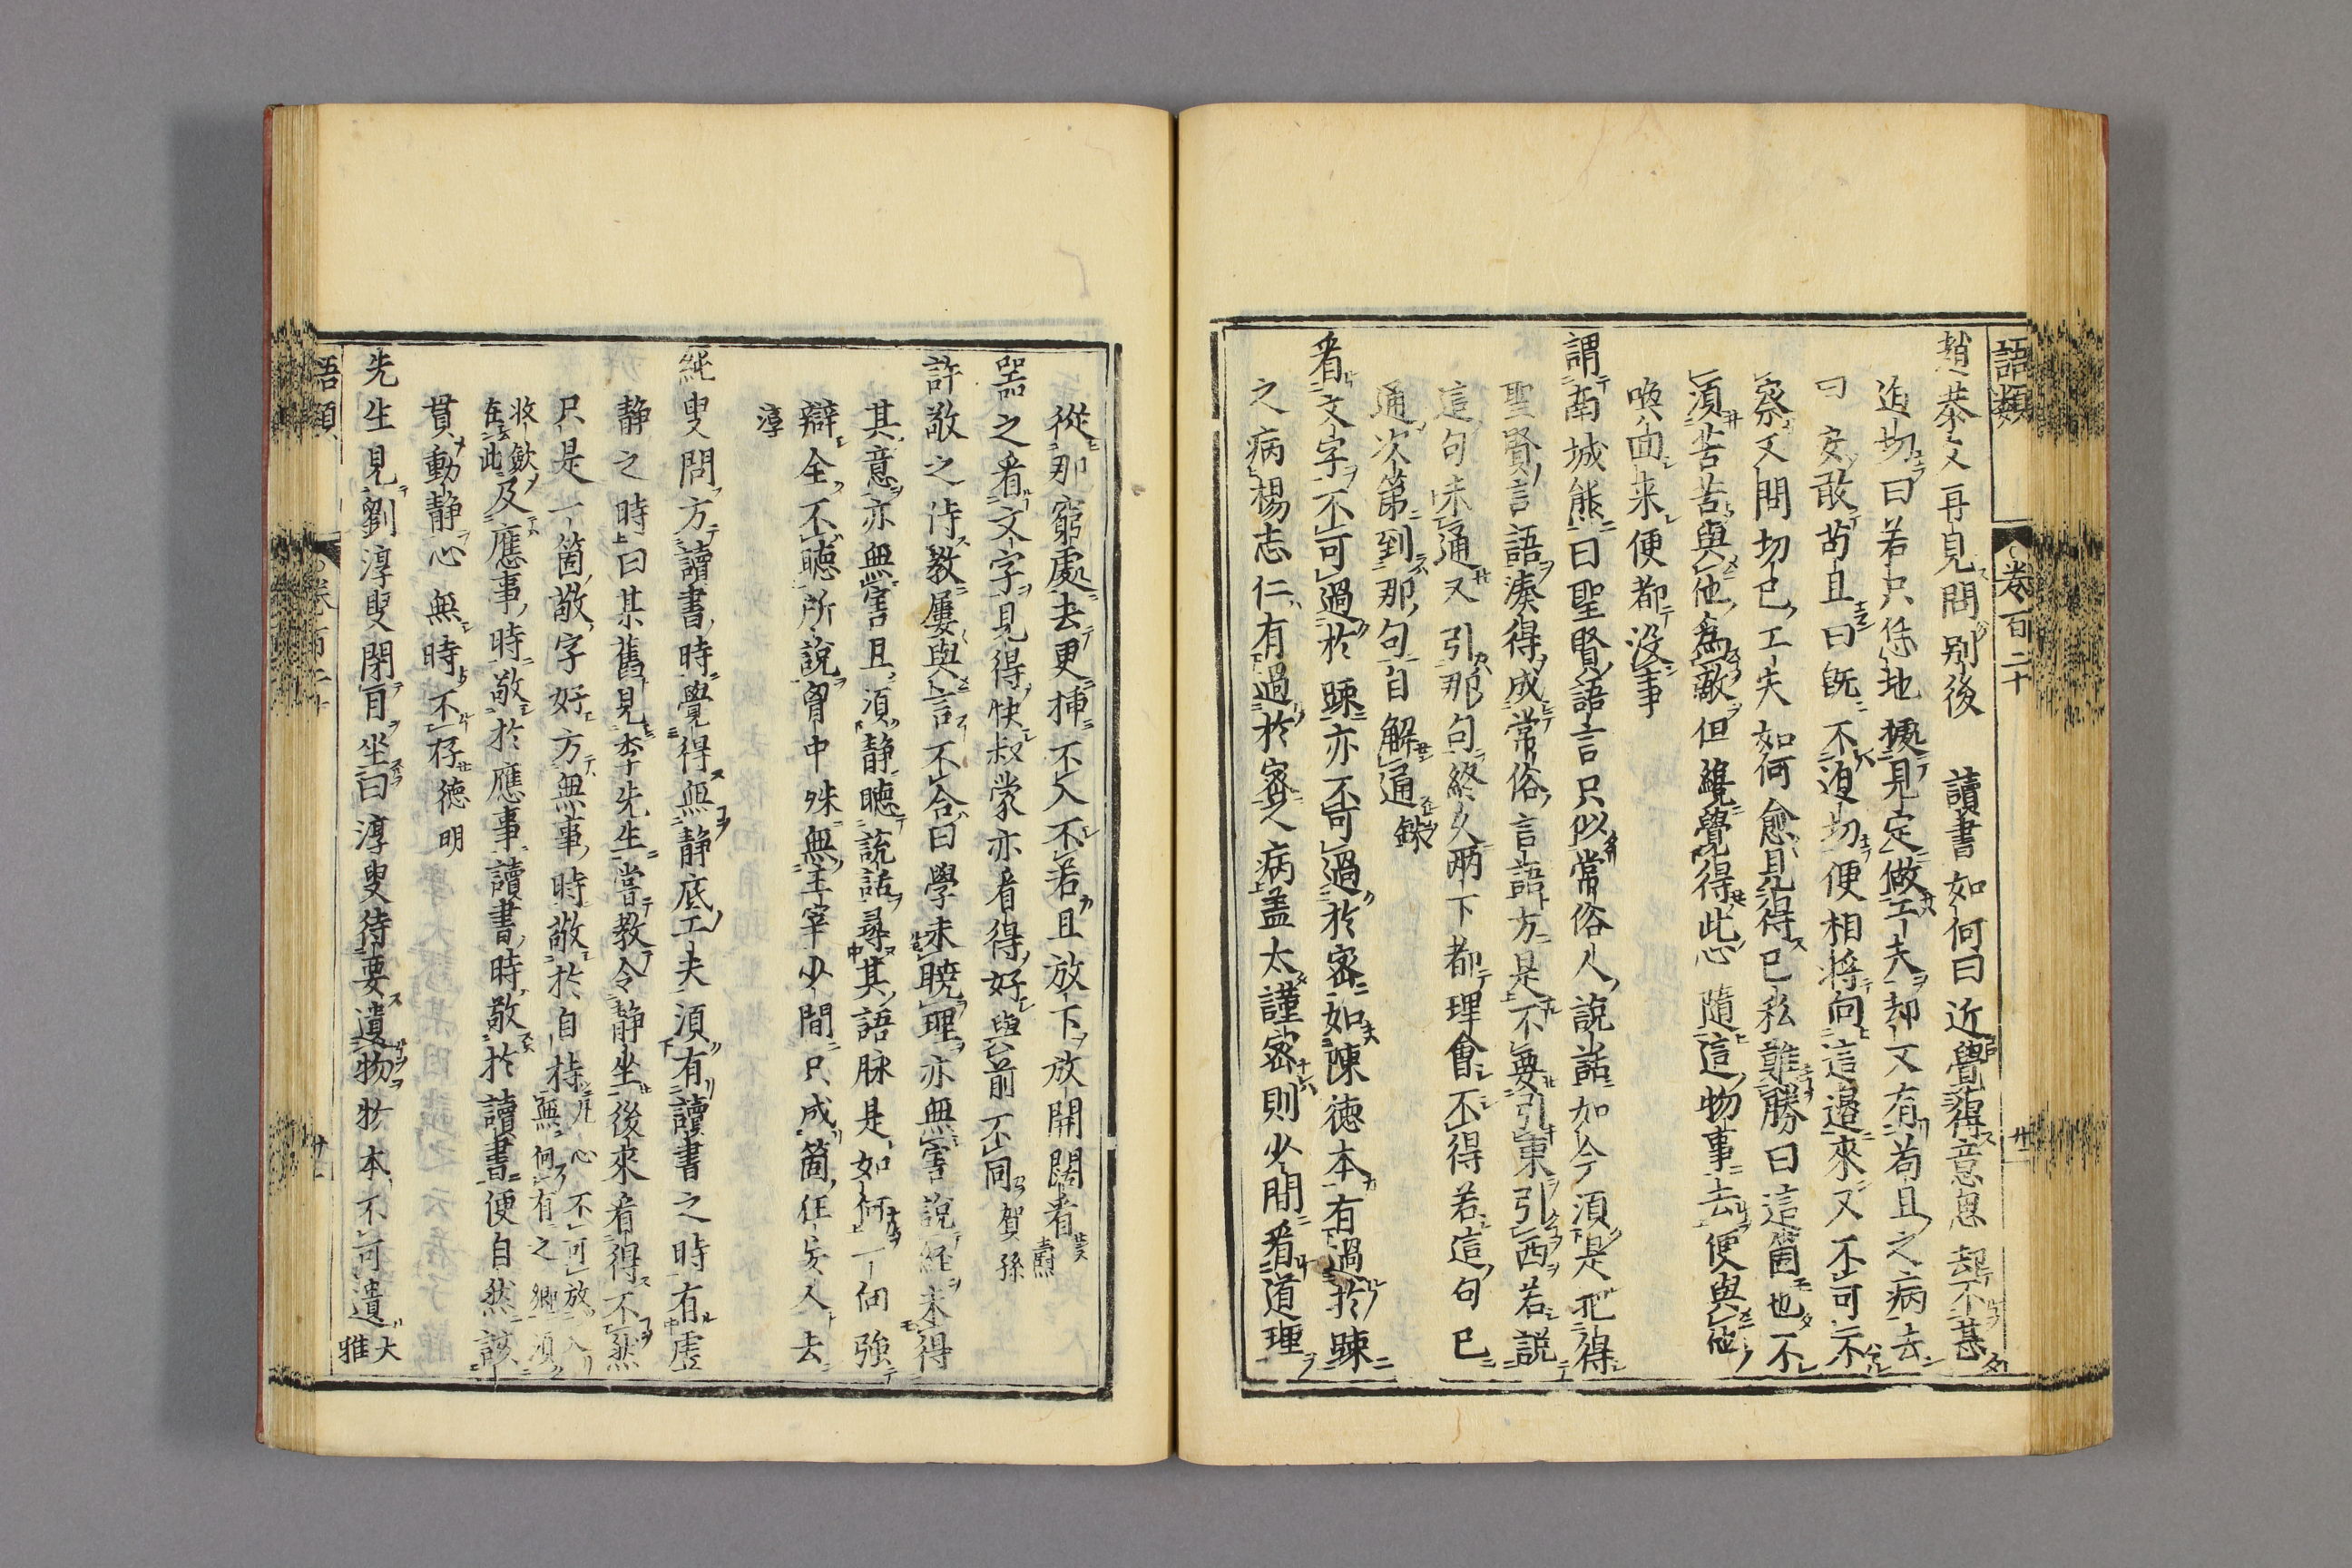 語類
卷百二十
廿一
趙恭父再見問別後讀書如何曰近覺得意思却不甚
迫切曰若只恁地據見定做工夫却又有苟且之病去
曰安敢苟且曰旣不迫切便相將向這邊來又不可不
察又問切己工夫如何愈見得己私難勝曰這箇也不
須苦苦與他為敵但纔覺得此心隨這物事去便與他
喚回来便都没事
謂南城熊曰聖賢語言只似常俗人說話如今須是把得
聖賢言語湊得成常俗言語方是不要引東引西若說
這句未通又引那句終久兩下都理會不得若這句已
通次第到那句自解通
看文字不可過於踈亦不可過於密如陳德本有過於踈
之病楊志仁有過於密之病盖太謹密則少間看道理
從那窮處去更揷不入不若且放下放開闊看 燾
器之看文字見得快叔蒙亦看得好與前不同 賀孫
許敬之侍教屢與言不合曰學未曉理亦無害說経未得
其意亦無害且須靜聽說話尋其語脉是如何一向強
辯全不聽所說胷中殊無主宰少間只成箇狂妄人去
淳
純叟問方讀書時覺得無静底工夫須有讀書之時有虛
静之時曰某舊見李先生嘗教令静坐後來看得不然
只是一箇敬字好方無事時敬於自持凡心不可放入無何有之鄉須
收歛在此及應事時敬於應事讀書時敬於讀書便自然該
貫動静心無時不存 德明
先生見劉淳叟閉目坐曰淳叟待要遺物物本不可遺 大雅
語類
卷百二十